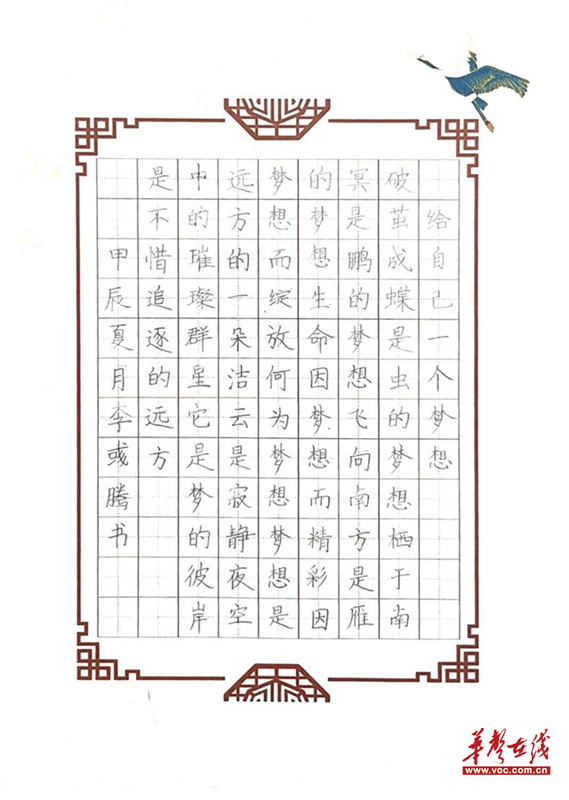 给自己一个梦想
破茧成蝶是虫的梦想栖于南
冥是鹏的梦想飞向南方是雁
的梦想生命因梦想而精彩因
梦想而绽放何为梦想梦想是
远方的一朵洁云是寂静夜空
中的璀璨群星它是梦的彼岸
是不惜追逐的远方
甲辰夏月李彧腾书
华声在线
www.voc.com.cn